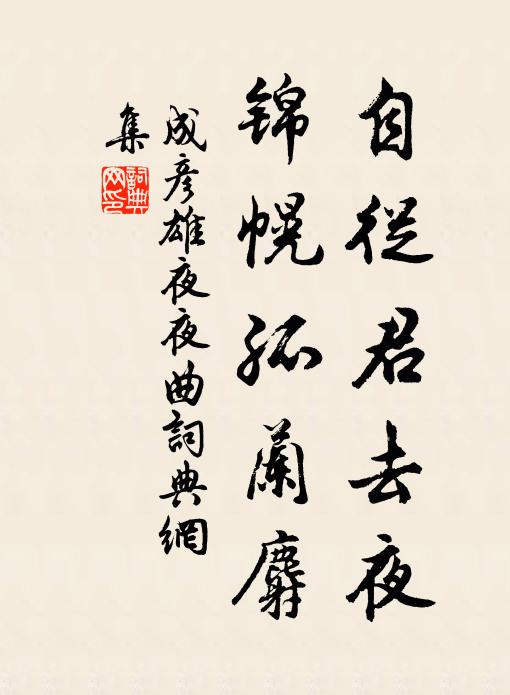 自從君去夜
锦幌孤蘭麝
成彥雄夜夜曲詞典網
集
詞典
网印